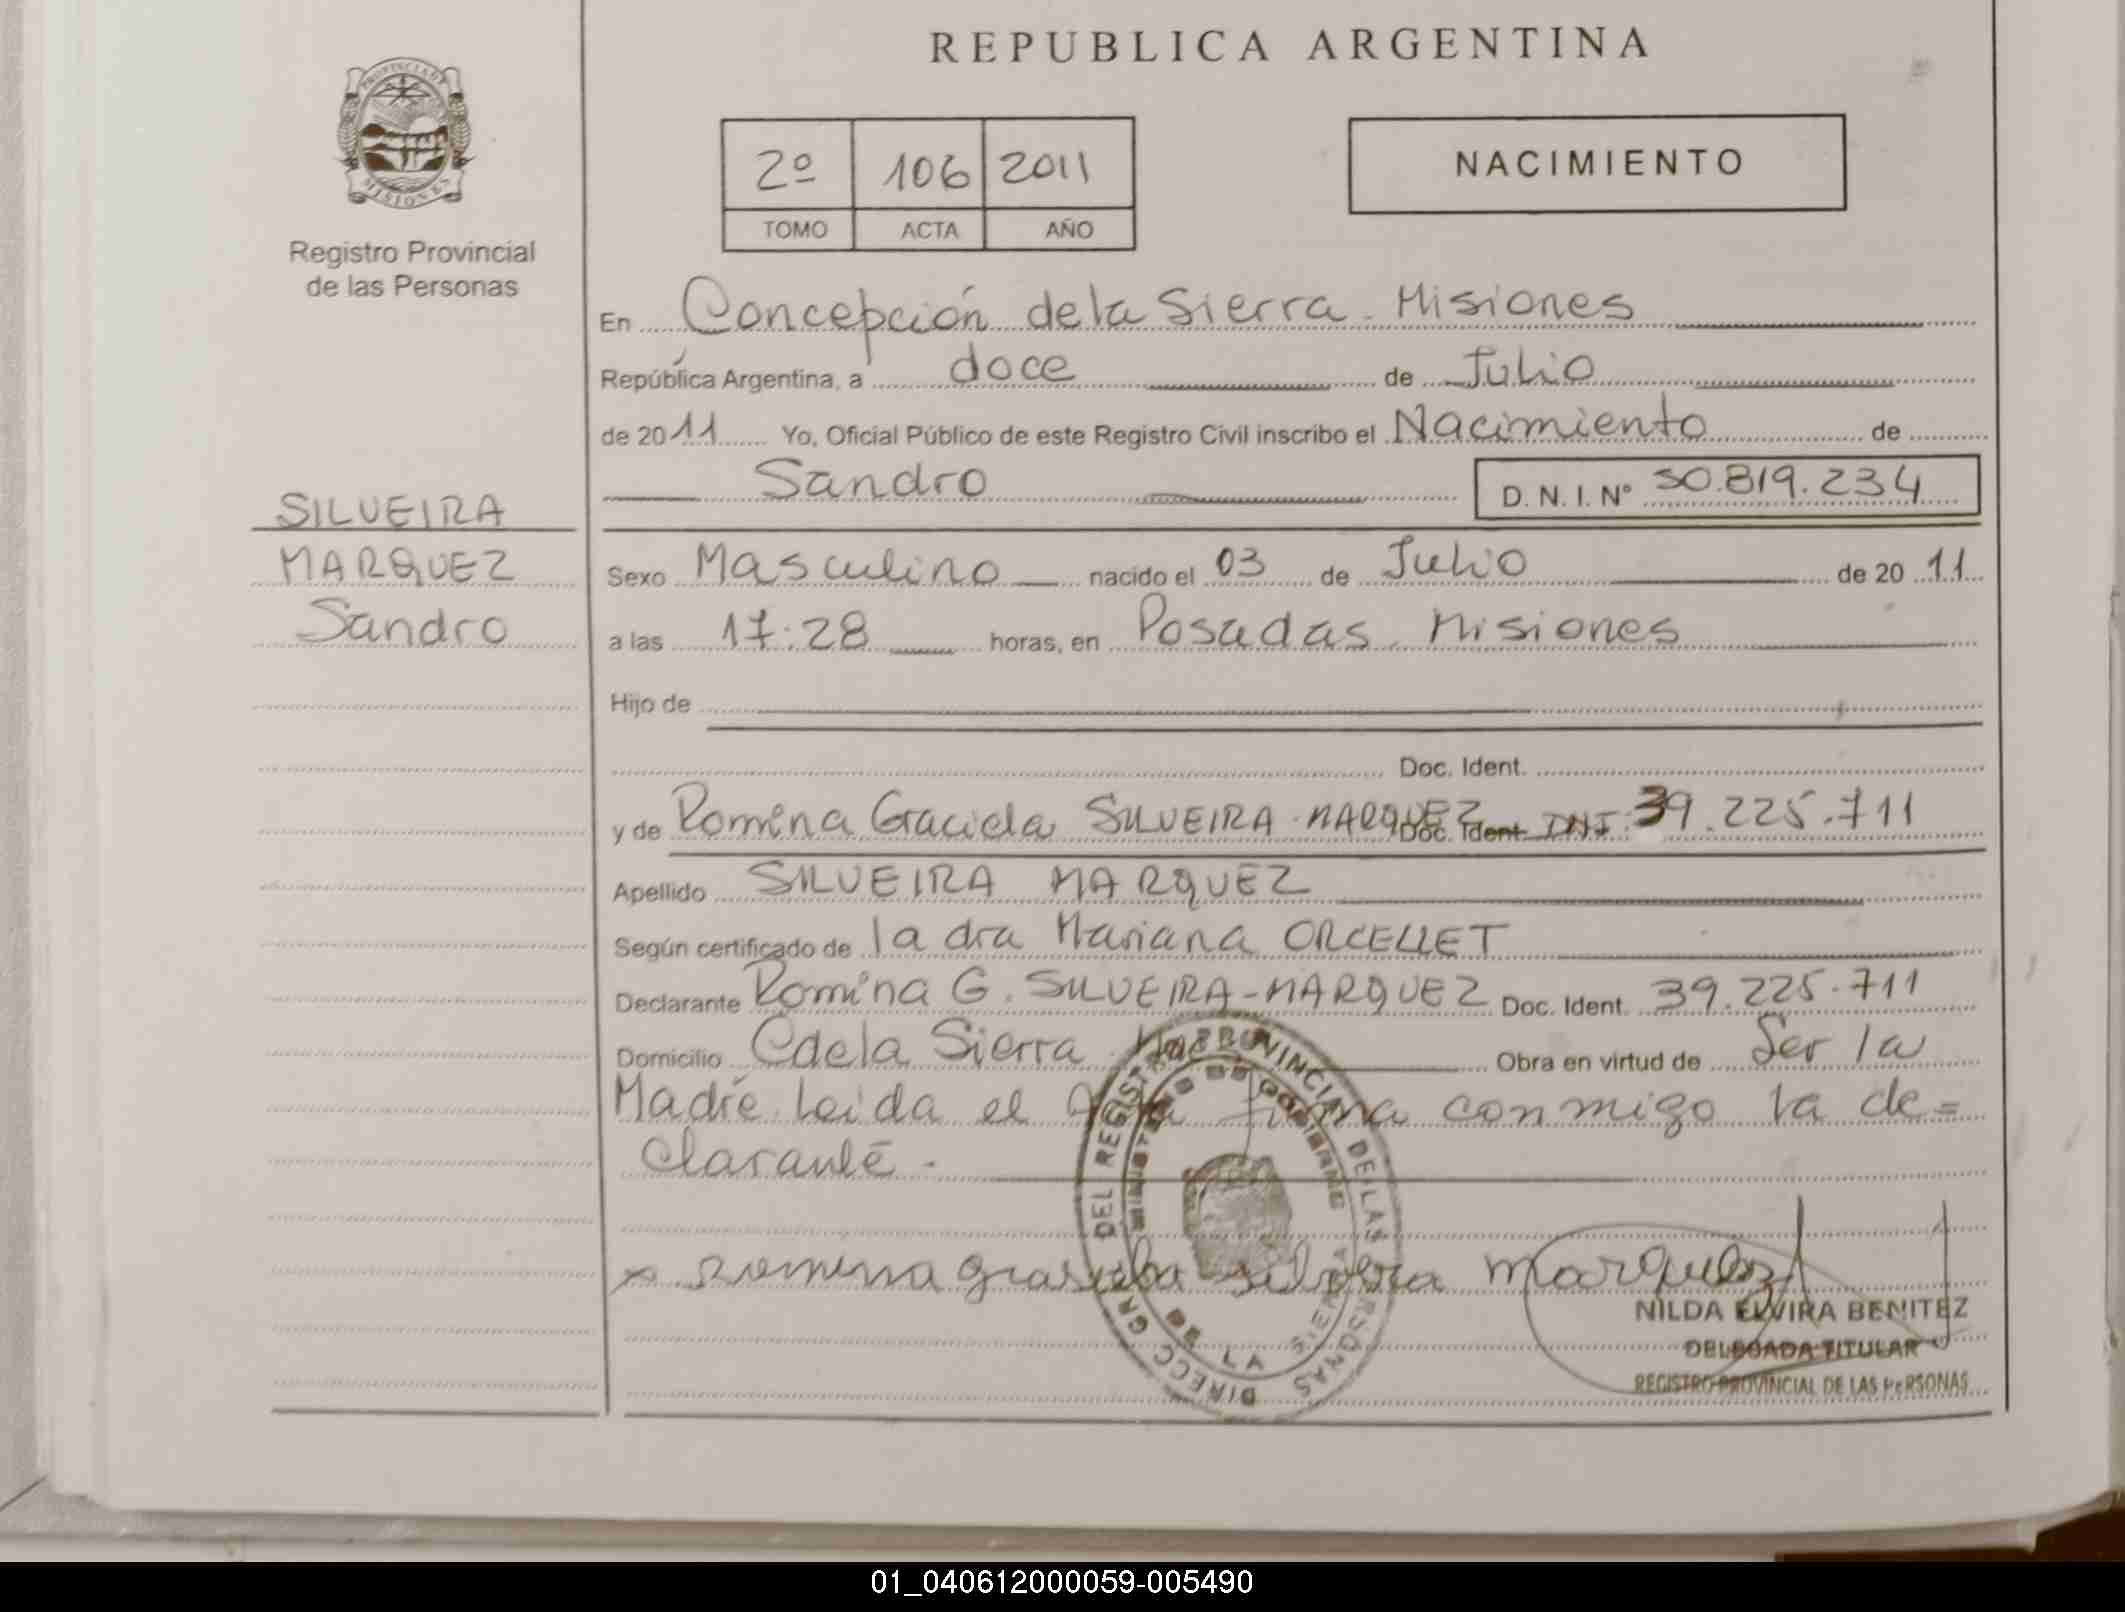 REPUBLICA ARGENTINA
PROVINCIA DE
MISIONES
Registro Provincial
de las Personas
2º 106 2011
TOMO ACTA AÑO
NACIMIENTO
En Concepción de la Sierra - Misiones
República Argentina, a doce de Julio
de 2011 Yo, Oficial Público de este Registro Civil inscribo el Nacimiento de
Sandro D.N.I. Nº 50.819.234
SILVEIRA
MARQUEZ
Sandro
Sexo Masculino nacido el 03 de Julio de 2011
a las 17:28 horas, en Posadas - Misiones
Hijo de
Doc. Ident.
y de Romina Graciela SILVEIRA - MARQUEZ Doc. Ident. DNI. 39.225.711
Apellido SILVEIRA MARQUEZ
Según certificado de la dra Mariana ORCELLET
Declarante Romina G. SILVEIRA-MARQUEZ Doc. Ident. 39.225.711
Domicilio C de la Sierra Obra en virtud de Ser la
Madre. Leida el firma conmigo la de=
clarante.-
x Romina Marquez
DIRECC GRAL DEL REGISTRO PROVINCIAL DE LAS PERSONAS
DE LA SIERRA
NILDA ELVIRA BENITEZ
DELEGADA TITULAR
REGISTRO PROVINCIAL DE LAS PERSONAS
01_040612000059-005490